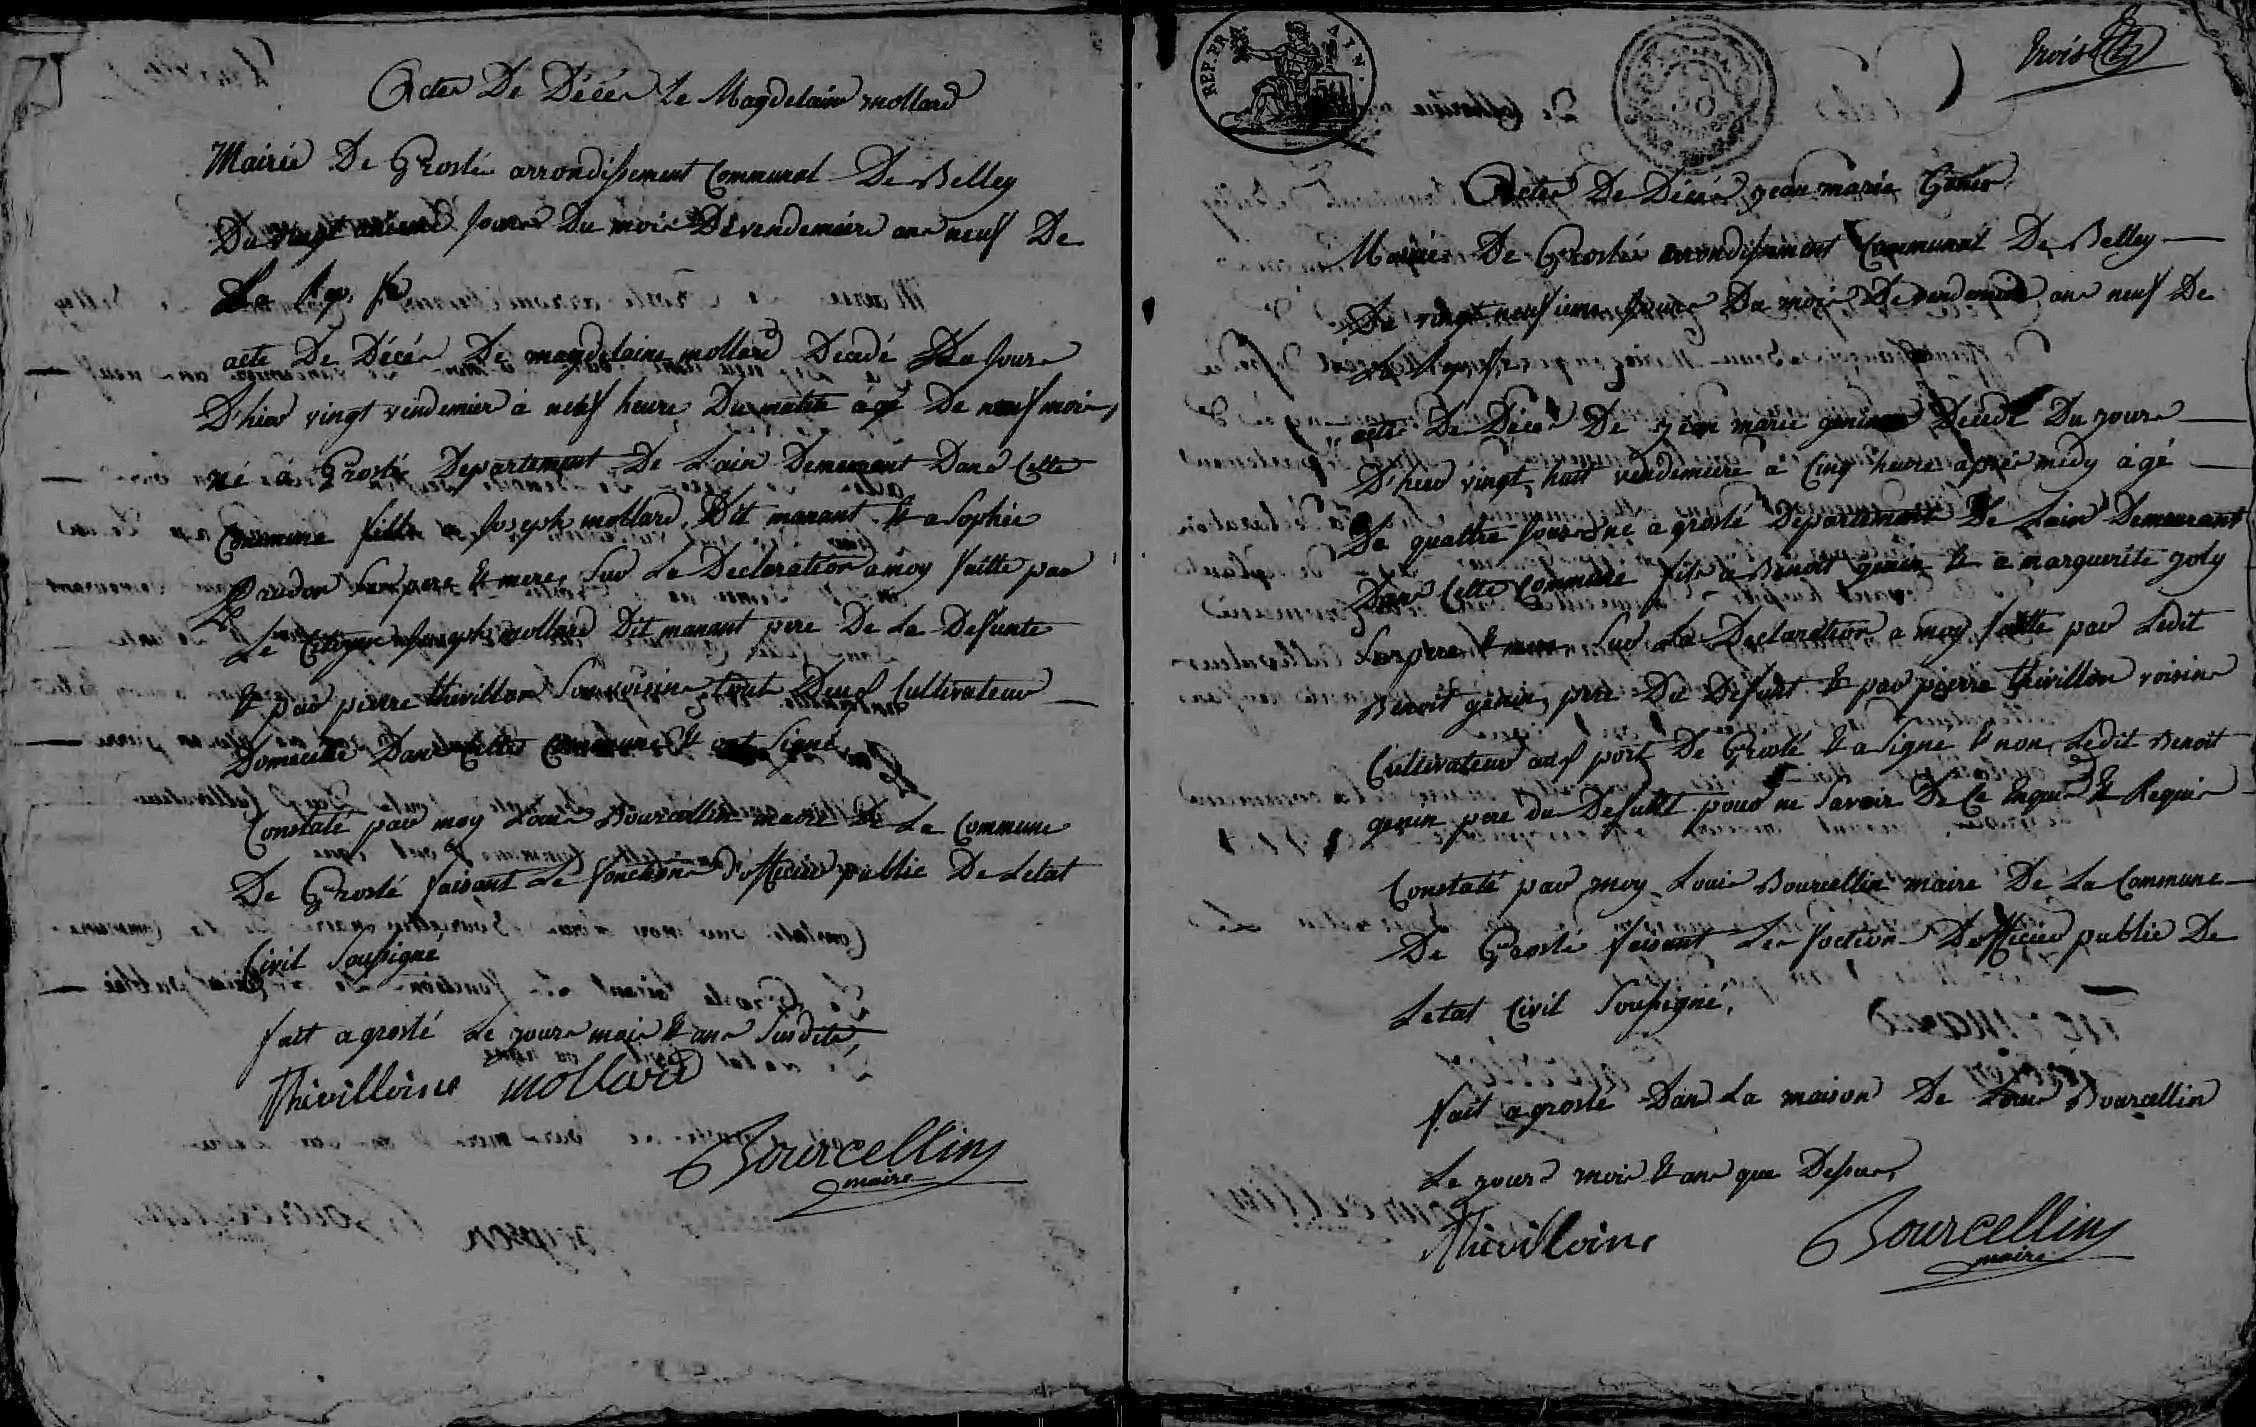 Actes De Décés De Magdelaine mollard
Mairie De Grosleé arrondissement Communal De Belley
Du vingt unieme Jour Du mois De vendemiaire an neuf De
La Rep. f
acte De Décés De magdelaine mollard Décedé Du Jour
D'hier vingt vendemier à neuf heure Du matin agé De neuf mois,
né à Groslé Departement De Lain Demeurant Dans Cette
Commune fille a Joseph mollard Dit manant & a Sophie
Son pere & mere, Sur La Declaration a moy faitte par
Le Citoyen Joseph mollard Dit manant pere De La Defunte
& par pierre thivillon Son voisin tout Deux Cultivateur
Domicilié Dans Cette Commune & ont Signé
Constaté par moy Louis Bourcellin maire De La Commune
De Groslé faisant Le fonction D'officier public De Letat
Civil Soussigné
fait a groslé Le jour mois & an Susdits,
Thivilloine mollard
Bourcellin
maire
trois
REP. FRA. AIN.
50
Actes De Décés jean marie Genin
Mairie De Groslée arrondissement Communal De Belley
Du vingt neufieme Jour Du mois De vendemiaire an neuf De
La Rep. f.
acte De Décés De jean marie genin Décedé Du jour
D'hier vingt huit vendemiere a Cinq heure aprés midy agé
De quattre Jour né a groslé Departement De Lain Demeurant
Dans Cette Commune fils a Benoit genin & a marguerite joly
Son pere & mere Sur La Declaration a moy faitte par Ledit
Benoit genin pere Du Defunt & par pierre thivillon voisin
Cultivateur au port De Groslé & a Signé & non Ledit Benoit
genin pere du Defunt pour ne Savoir De Ce Enquis & Requis
Constaté par moy Louis Bourcellin maire De La Commune
De Groslé faisant Les foction D'officier public De
Letat Civil Soussigné,
fait a groslé Dans La maison De Louis Bourcellin
Le jour mois & an que Dessus,
Thivilloine Bourcellin
maire